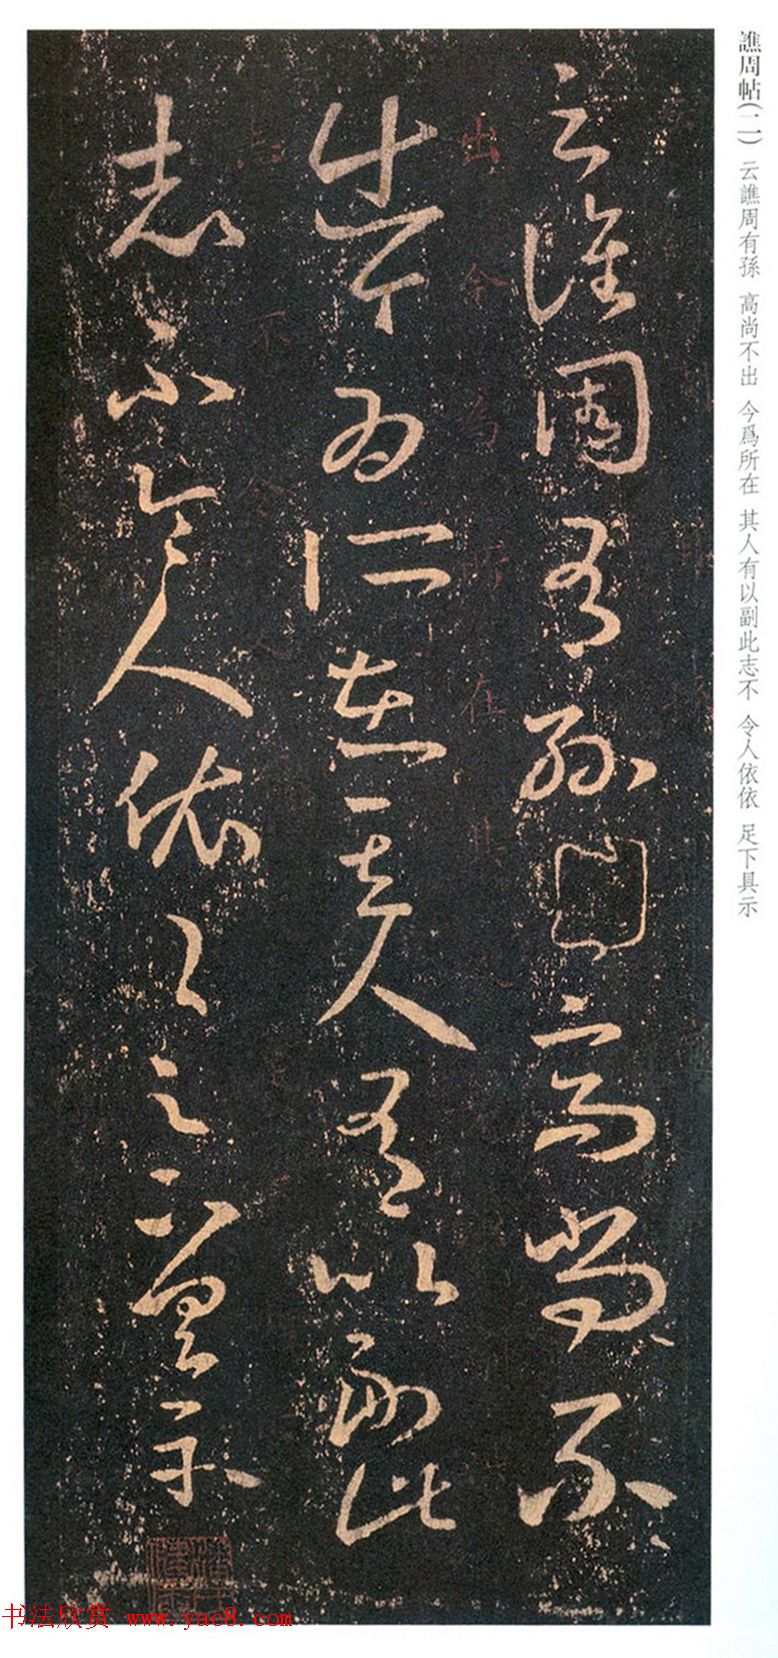 譙周帖(二) 云譙周有孫 高尚不出 今爲所在 其人有以副此志不 令人依依 足下具示
云譙周有孫高尚不
出今爲所在其人有以副此
志不令人依〻足下具示
书法欣赏 www.yac8.com